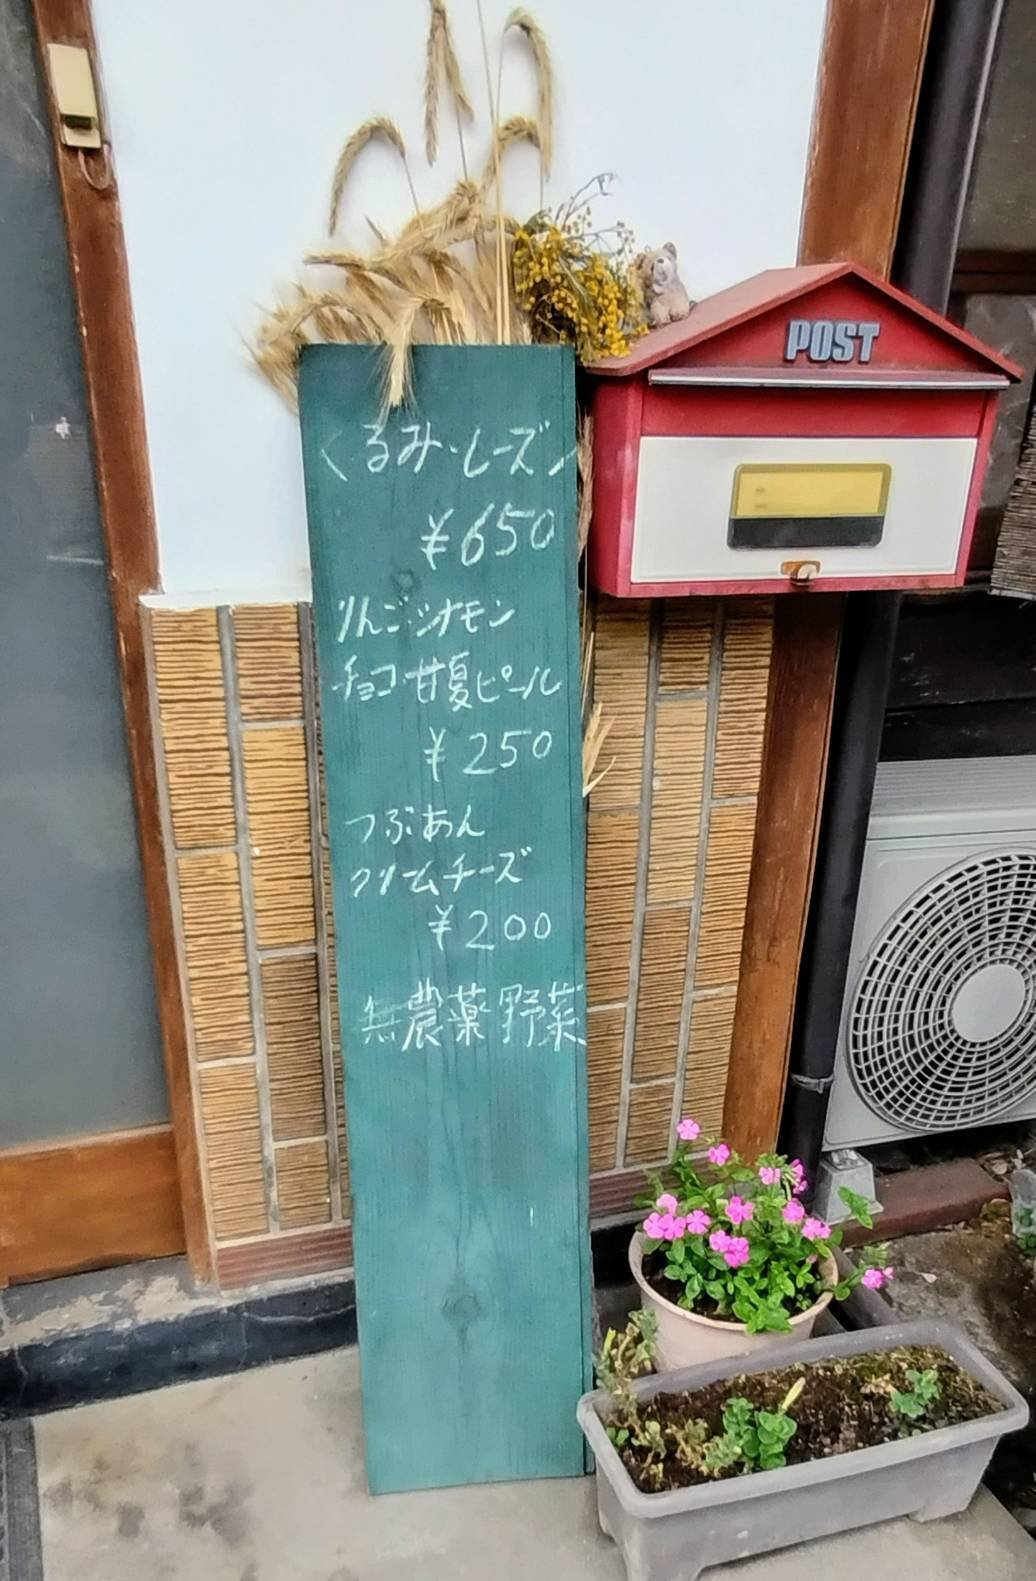 くるみ・レーズン
¥650
りんごシナモン
チョコ甘夏ピール
¥250
つぶあん
クリームチーズ
¥200
無農薬野菜
POST